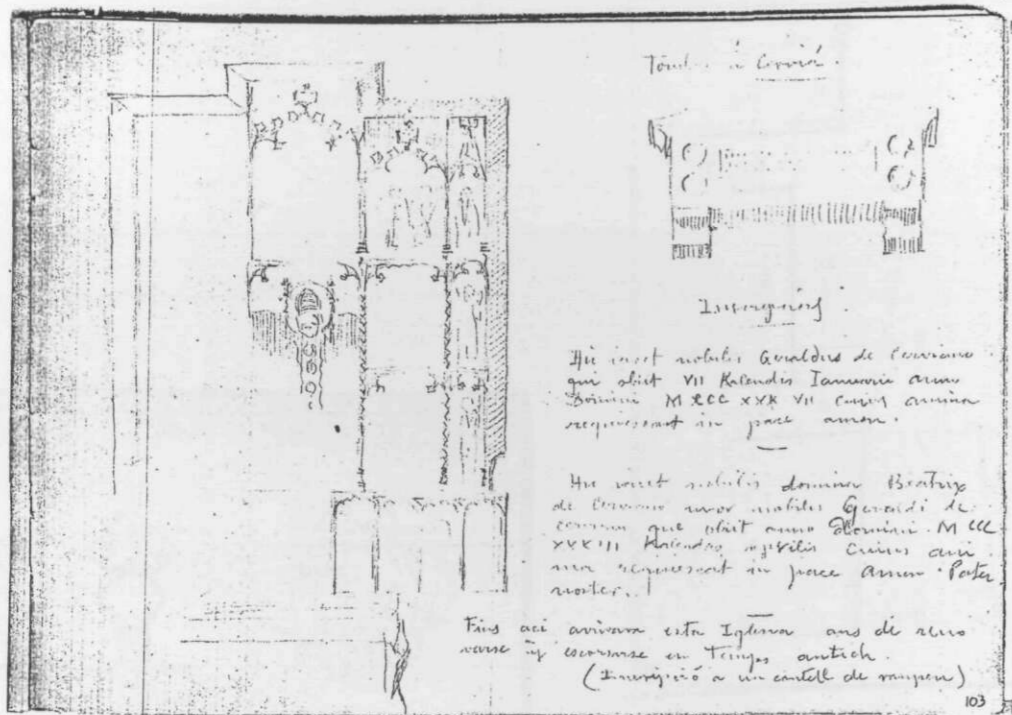 Tombas a Cerviá.
Inscripcions:
Hic iacet nobilis Geraldus de Cerviano
qui obiit VII Kalendis Ianuarii anno
Domini M CCC XXX VII cuius anima
requiescant in pace amen.
Hic iacet nobilis domina Beatrix
de Cerviano uxor nobilis Geraldi de
Cerviano que obiit anno Domini M CCC
XXXIII Kalendas aprilis Cuius ani
ma requiescat in pace Amen. Pater
noster.
Fins aci arivava esta Iglesia ans de reno
varse y escursarse en Temps antich.
(Inscripció a un cantell de rampeu)
103